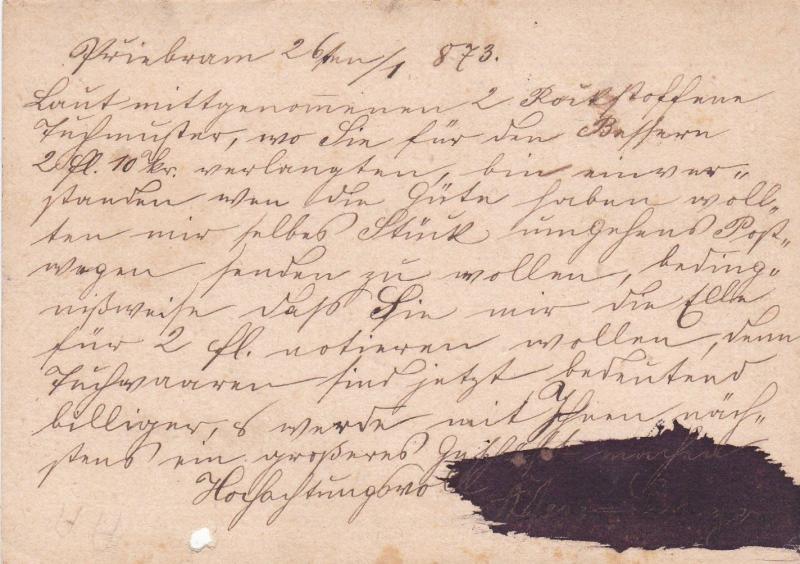 Priebram 26ten/1 873.
Laut mittgenommenen 2 Rockstoffene
Tuchmuster, wo Sie für den Bessern
2 fl. 10 kr. verlangten, bin einver„
standen wen die Güte haben woll„
ten mir selbes Stück umgehens Post„
wegen senden zu wollen, beding„
nißweise daß Sie mir die Elle
für 2 fl. notieren wollen, denn
Tuchwaaren sind jetzt bedeutend
billiger, s werde mit Ihnen näch„
stens ein großeres Geschäft machen
Hochachtungsvo